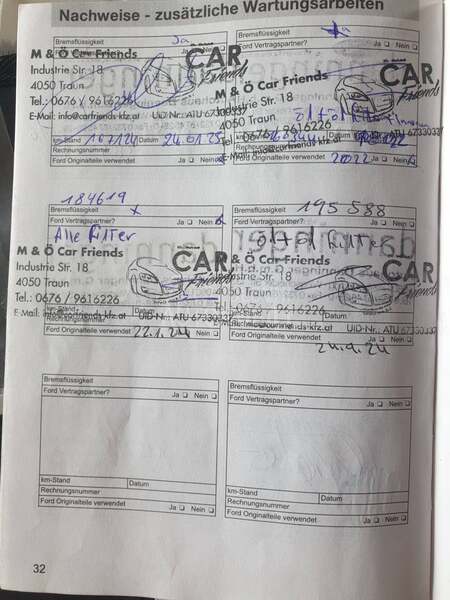 Nachweise - zusätzliche Wartungsarbeiten
Bremsflüssigkeit Ja
Ford Vertragspartner? Ja Nein
M & Ö Car Friends
Industrie Str. 18
4050 Traun
Tel.: 0676 / 9616226
E-Mail: info@carfriends-kfz.at UID-Nr.: ATU 67330337
CAR
friends
km-Stand Datum
Rechnungsnummer
Ford Originalteile verwendet Ja Nein
Bremsflüssigkeit
Ford Vertragspartner? Ja Nein
M & Ö Car Friends
Industrie Str. 18
4050 Traun
Tel.: 0676 / 9616226
info@carfriends-kfz.at
CAR
friends
Rechnungsnummer
Ford Originalteile verwendet 2022 Ja
184619
Bremsflüssigkeit x
Ford Vertragspartner? Ja Nein
Alle Filter
M & Ö Car Friends
Industrie Str. 18
4050 Traun
Tel.: 0676 / 9616226
CAR
friends
E-Mail: info@carfriends-kfz.at UID-Nr.: ATU 67330337
Rechnungsnummer
Ford Originalteile verwendet 22.1.24 Ja Nein
Bremsflüssigkeit 195588
Ford Vertragspartner? Ja Nein
Car Friends
4050 Traun
Tel.: 0676 / 9616226
CAR
friends
UID-Nr.: ATU 67330337
Rechnungsnummer
Ford Originalteile verwendet Ja Nein
24.9.24
Bremsflüssigkeit
Ford Vertragspartner? Ja Nein
km-Stand Datum
Rechnungsnummer
Ford Originalteile verwendet Ja Nein
Bremsflüssigkeit
Ford Vertragspartner? Ja Nein
km-Stand Datum
Rechnungsnummer
Ford Originalteile verwendet Ja Nein
32